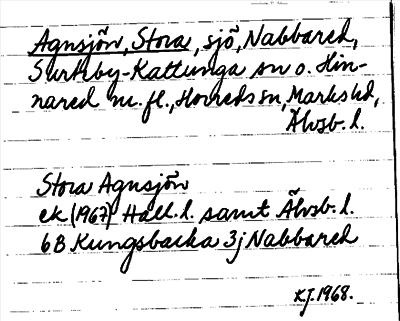 Agnsjön, Stora, sjö, Nabbared,
Surteby-Kattunga sn o. Hin-
nared m. fl., Horreds sn, Marks hd,
Älvsb. l.
Stora Agnsjön
ek (1967) Hall. l. samt Älvsb. l.
6B Kungsbacka 3j Nabbared
KJ. 1968.